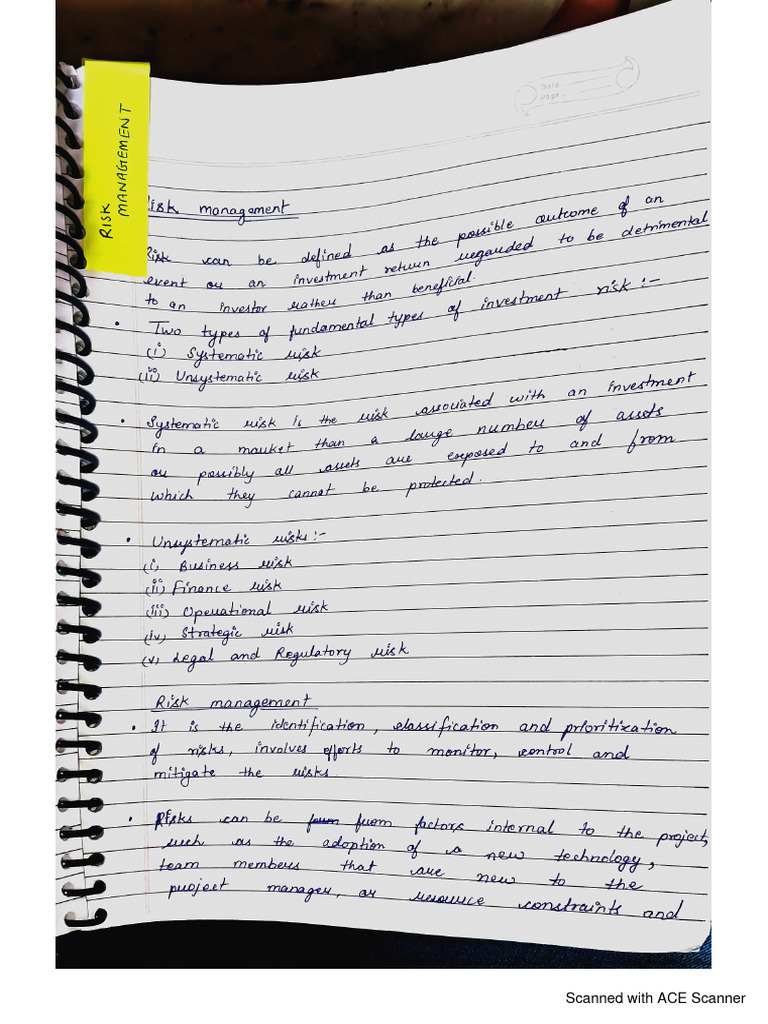 Date
Page
RISK
MANAGEMENT
Risk management
Risk can be defined as the possible outcome of an
event or an investment return regarded to be detrimental
to an investor rather than beneficial.
• Two types of fundamental types of investment risk :-
(i) Systematic risk
(ii) Unsystematic risk
• Systematic risk is the risk associated with an investment
in a market than a large number of assets
or possibly all assets are exposed to and from
which they cannot be protected.
• Unsystematic risks :-
(i) Business risk
(ii) Finance risk
(iii) Operational risk
(iv) Strategic risk
(v) Legal and Regulatory risk
Risk management
• It is the identification, classification and prioritization
of risks, involves efforts to monitor, control and
mitigate the risks.
• Risks can be from factors internal to the project,
such as the adoption of a new technology,
team members that are new to the
project manager, or resource constraints and
Scanned with ACE Scanner